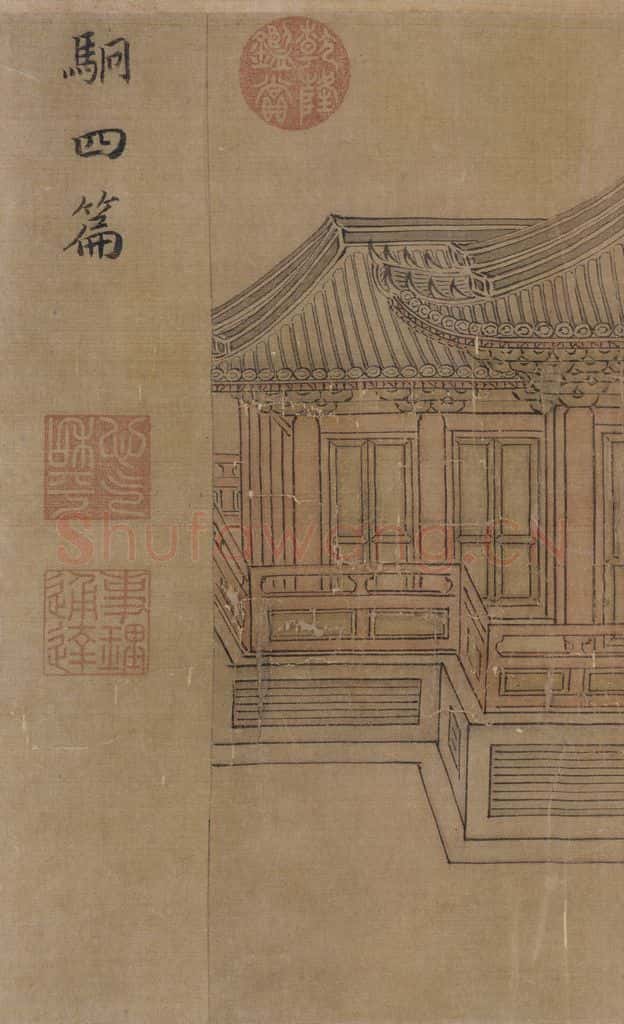 駉四篇
乾隆
鑑賞
心氣
和平
事理
通達
Shufawang.CN